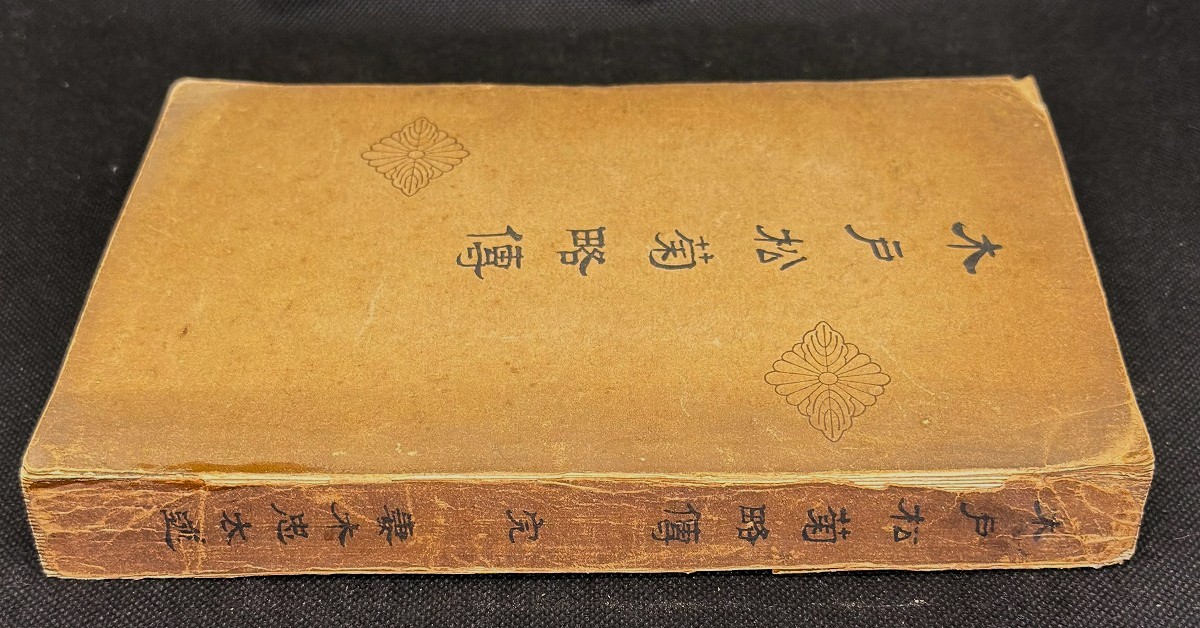 木戸松菊略傳
木戸松菊略傳 完 妻木忠太述